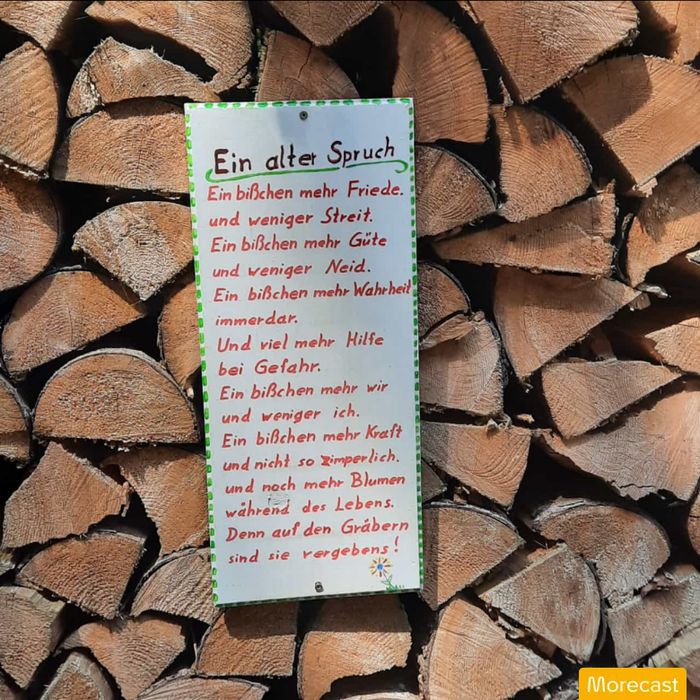 Ein alter Spruch
Ein bißchen mehr Friede.
und weniger Streit.
Ein bißchen mehr Güte
und weniger Neid.
Ein bißchen mehr Wahrheit
immerdar.
Und viel mehr Hilfe
bei Gefahr.
Ein bißchen mehr wir
und weniger ich.
Ein bißchen mehr Kraft
und nicht so zimperlich.
und noch mehr Blumen
während des Lebens.
Denn auf den Gräbern
sind sie vergebens!
Morecast